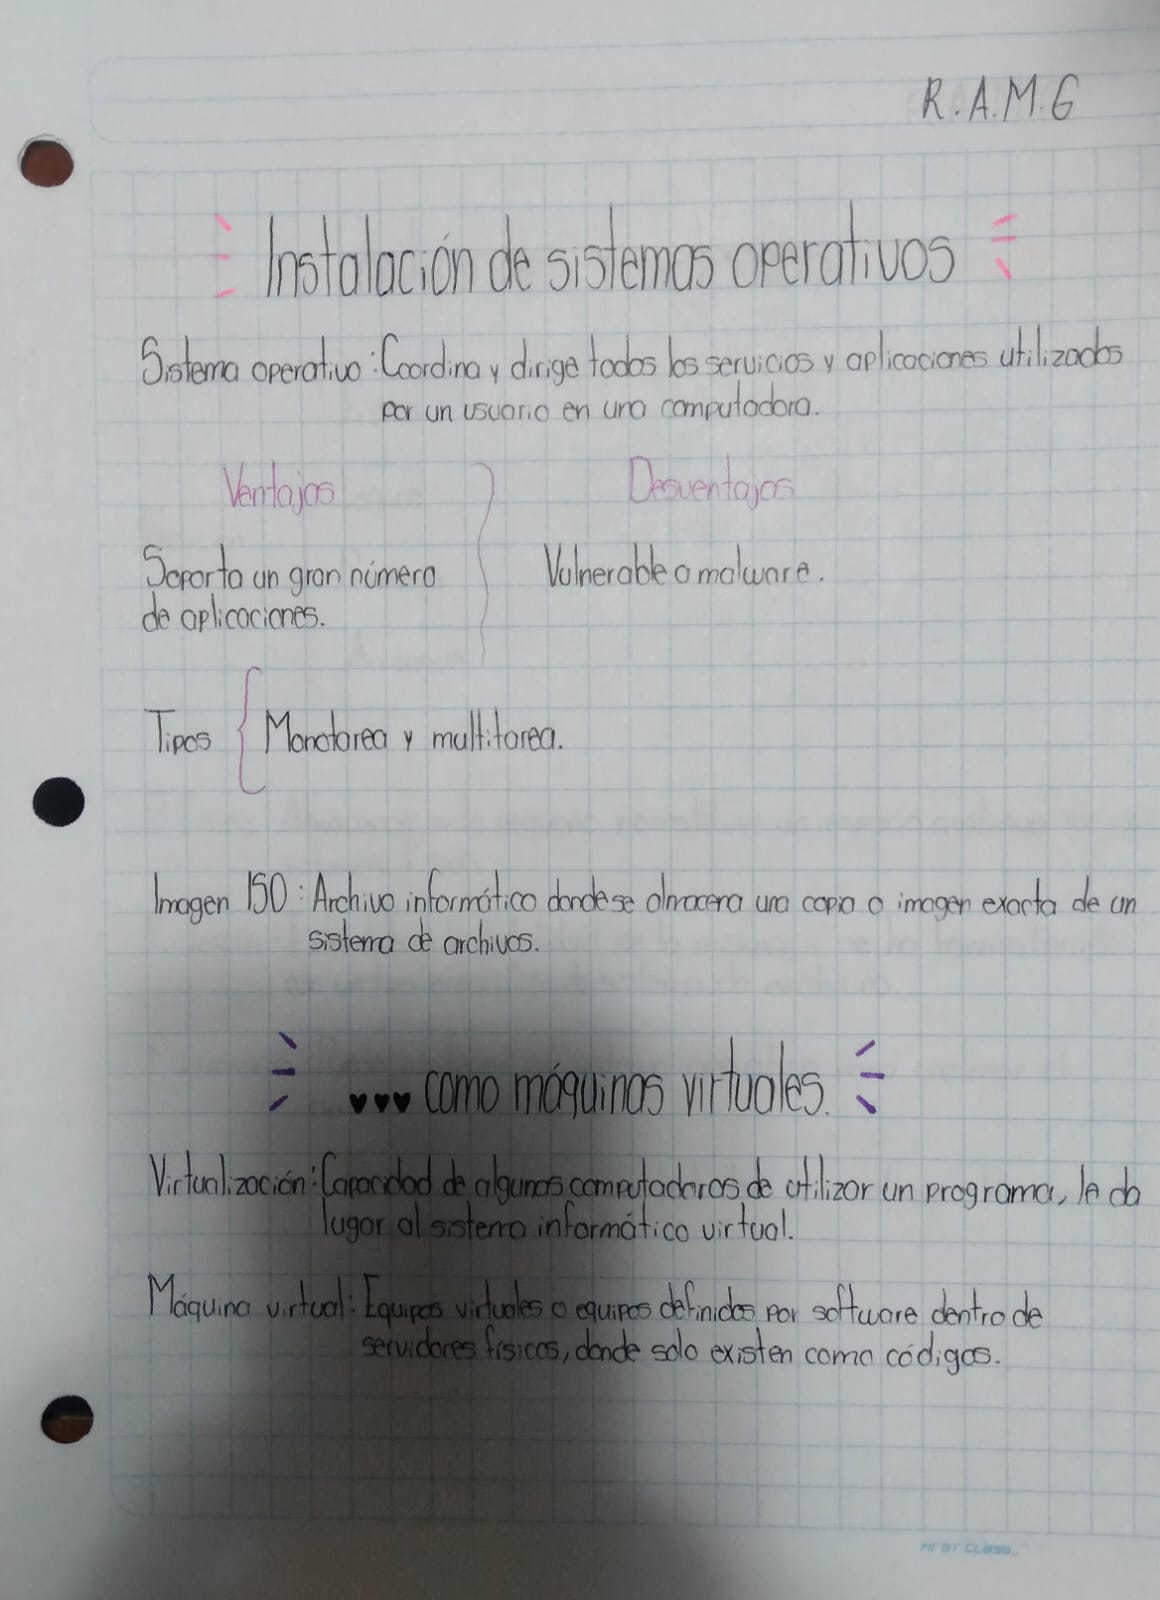 R.A.M.G
Instalación de sistemas operativos
Sistema operativo: Coordina y dirige todos los servicios y aplicaciones utilizados
por un usuario en una computadora.
Ventajas
Desventajas
Soporta un gran número
de aplicaciones.
Vulnerable a malware.
Tipos { Monotarea y multitarea.
Imagen ISO: Archivo informático donde se almacena una copia o imagen exacta de un
sistema de archivos.
♥♥♥ como máquinas virtuales.
Virtualización: Capacidad de algunas computadoras de utilizar un programa, le da
lugar al sistema informático virtual.
Máquina virtual: Equipos virtuales o equipos definidos por software dentro de
servidores físicos, donde solo existen como códigos.
FIRST CLASS.